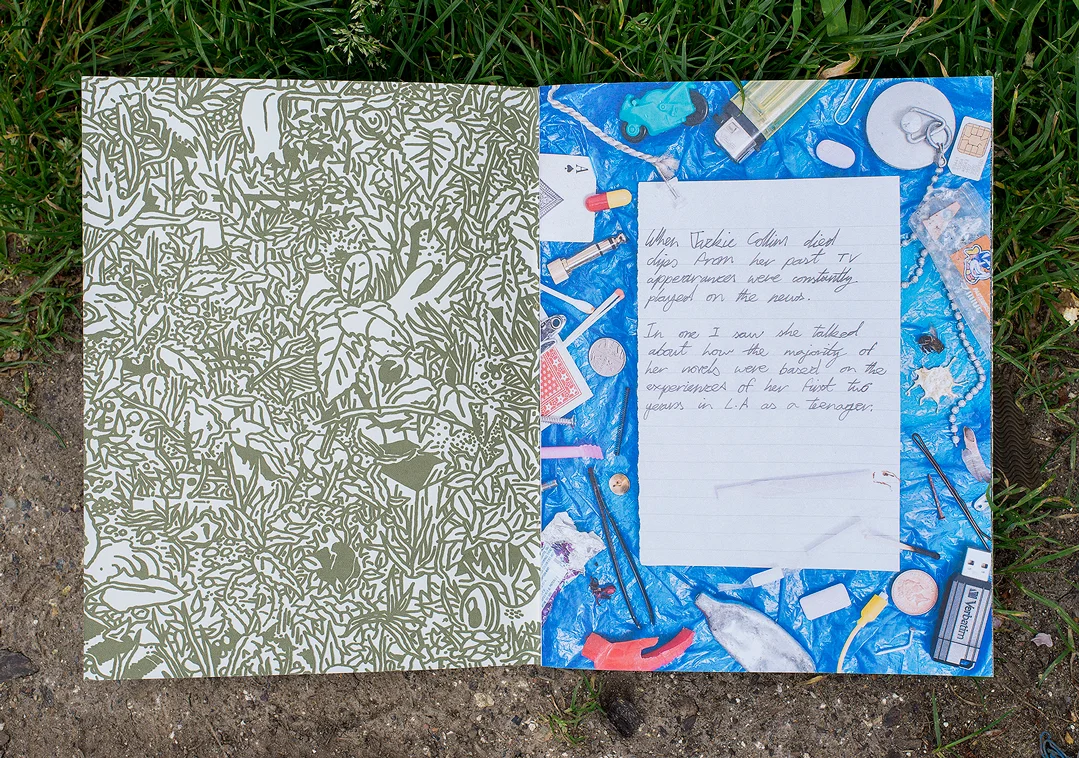 A
When Jackie Collins died
clips from her past TV
appearances were constantly
played on the news.
In one I saw she talked
about how the majority of
her novels were based on the
experiences of her first two
years in L.A as a teenager.
Verbatim